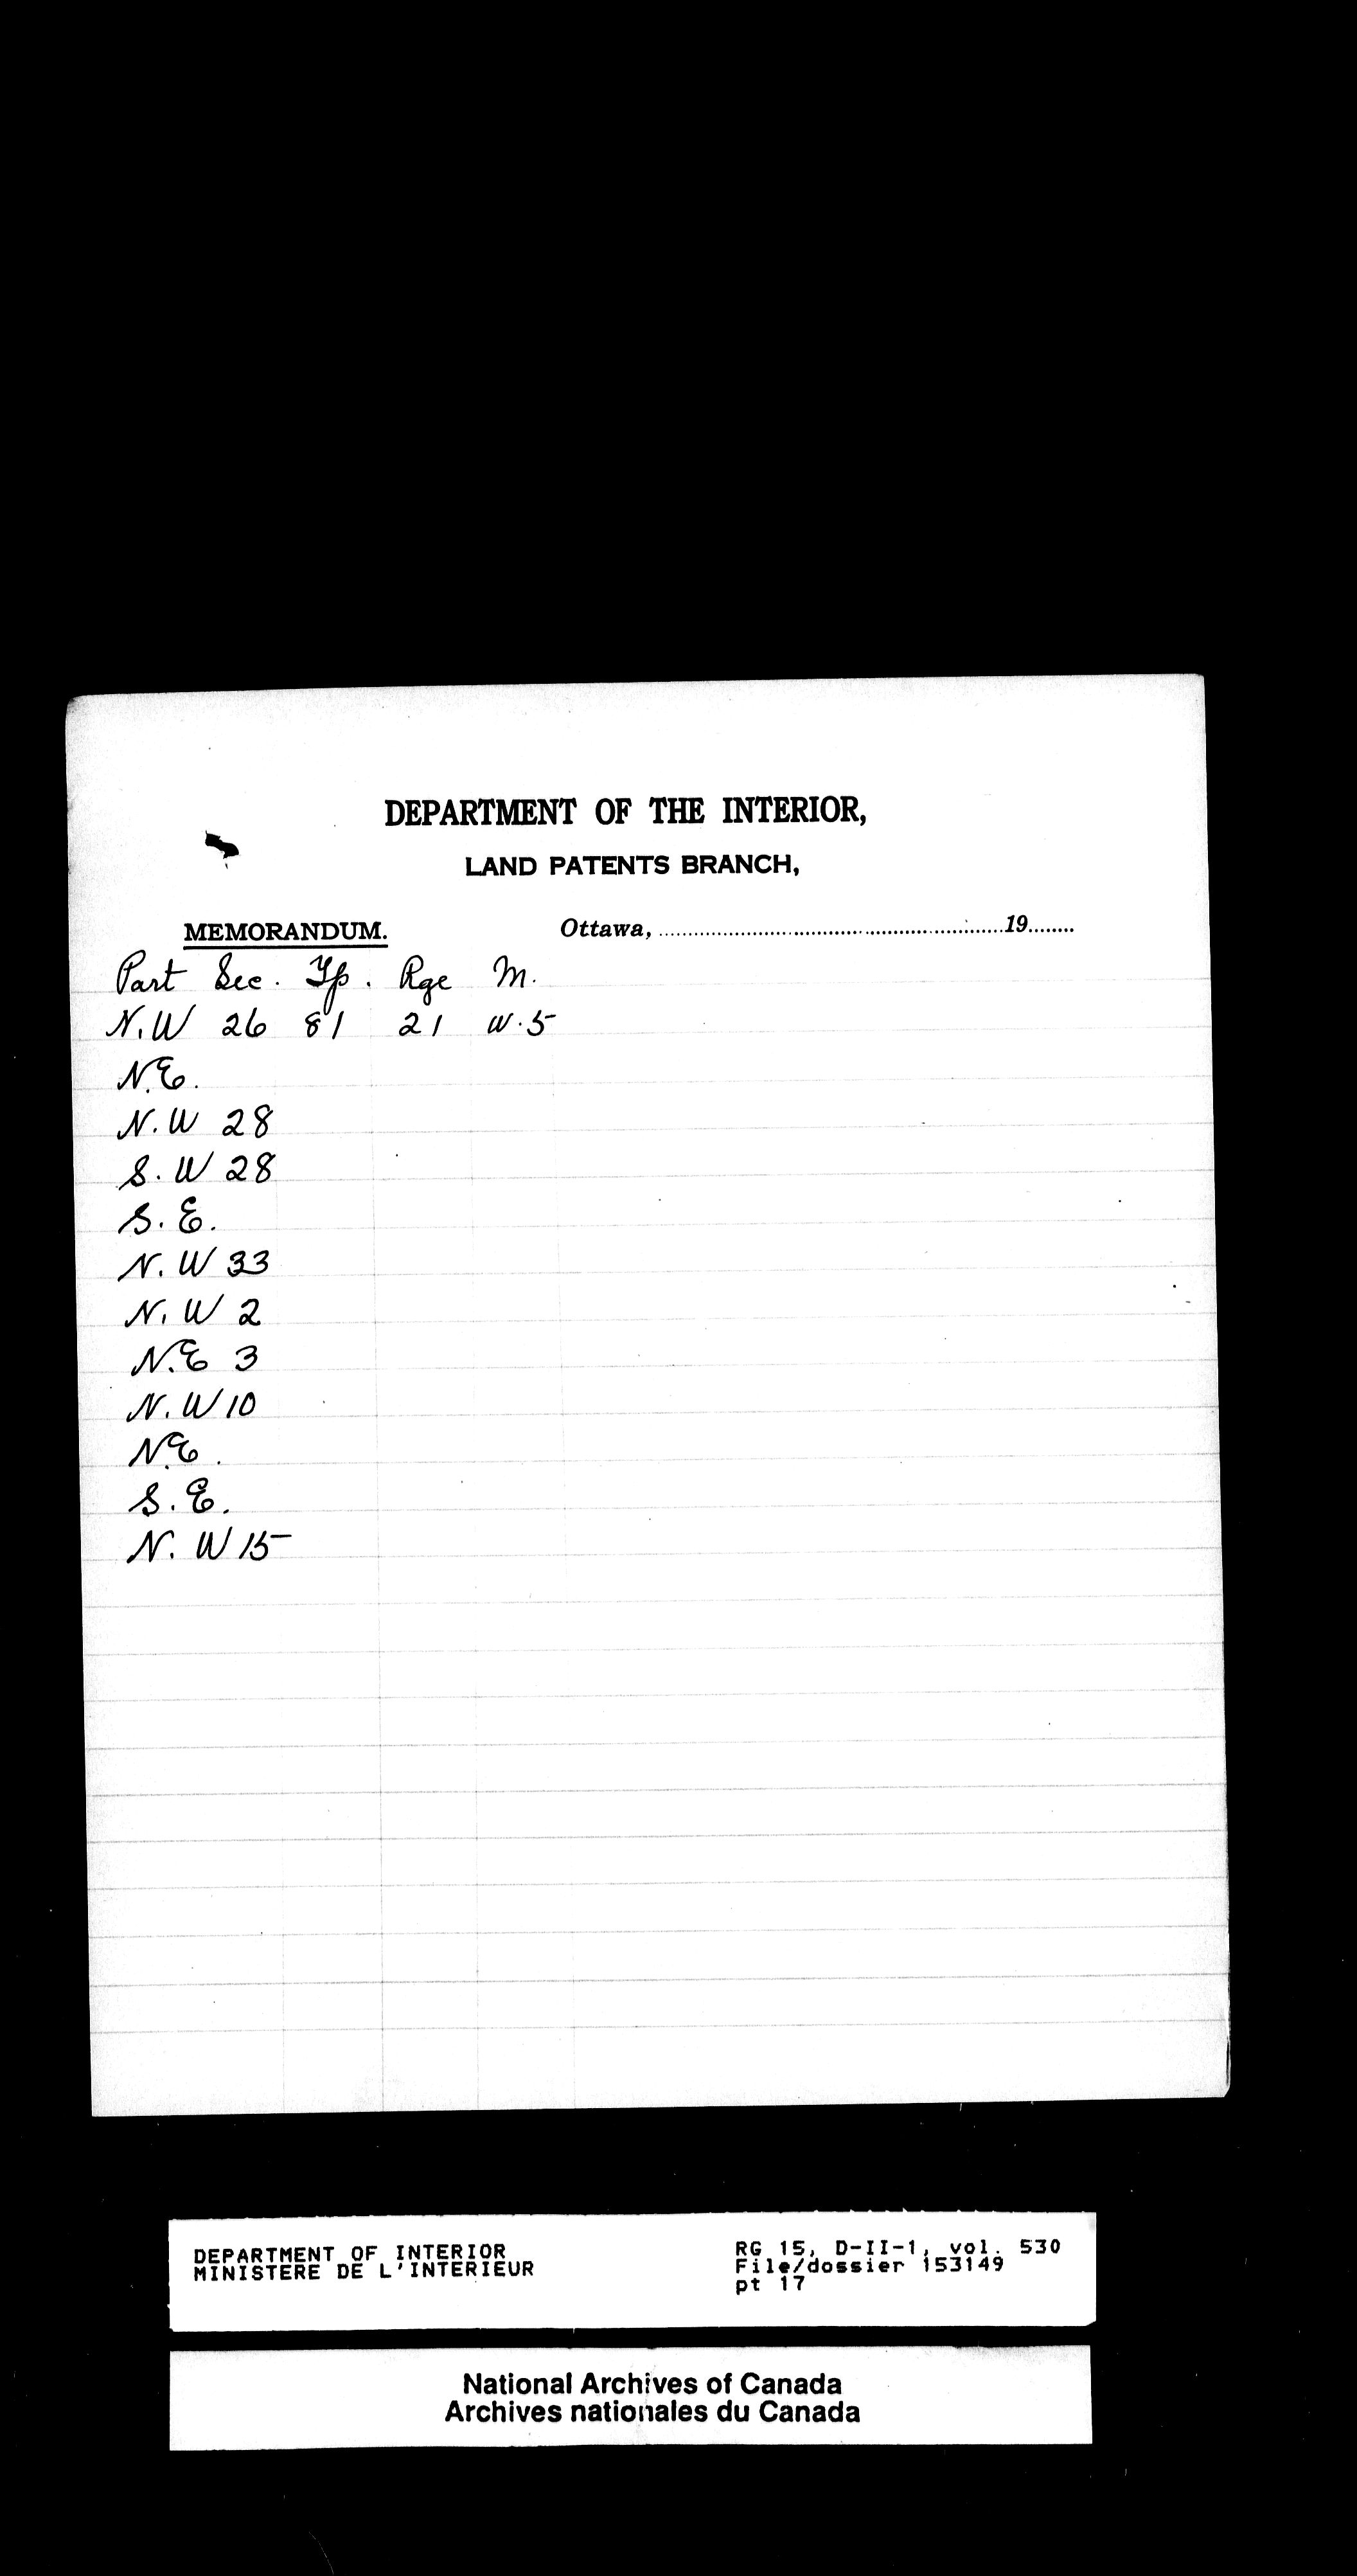 DEPARTMENT OF THE INTERIOR,
LAND PATENTS BRANCH,
MEMORANDUM. Ottawa, ............................................................19........
Part Sec. Tp. Rge M.
N.W 26 81 21 W.5
N.E.
N.W 28
S.W 28
S.E.
N.W 33
N.W 2
N.E 3
N.W 10
N.E.
S.E.
N.W 15
DEPARTMENT OF INTERIOR RG 15, D-II-1, vol. 530
MINISTERE DE L'INTERIEUR File/dossier 153149
pt 17
National Archives of Canada
Archives nationales du Canada